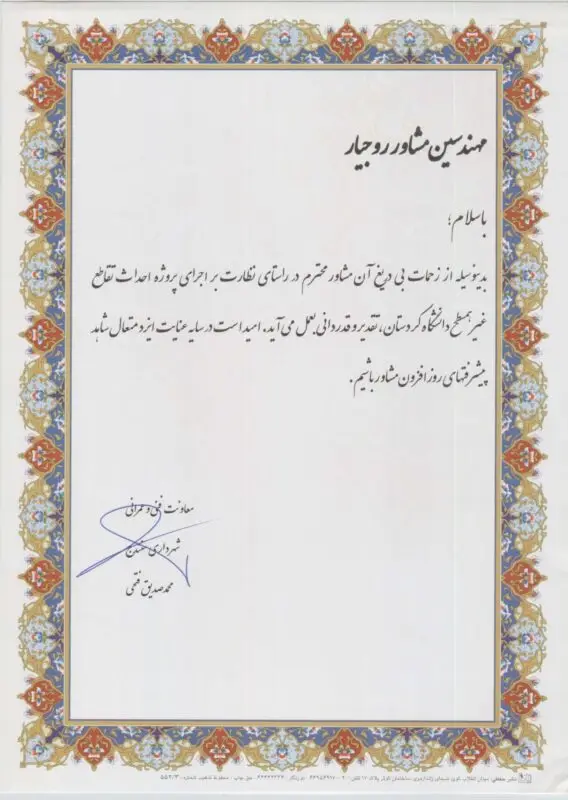 مهندسین مشاور روجیار
باسلام؛
بدینوسیله از زحمات بی دریغ آن مشاور محترم در راستای نظارت بر اجرای پروژه احداث تقاطع
غیر همسطح دانشگاه کردستان، تقدیر و قدردانی بعمل می آید. امید است در سایه عنایت ایزد متعال شاهد
پیشرفتهای روز افزون مشاور باشیم.
معاونت فنی و عمرانی
شهرداری سنندج
محمد صدیق فتحی